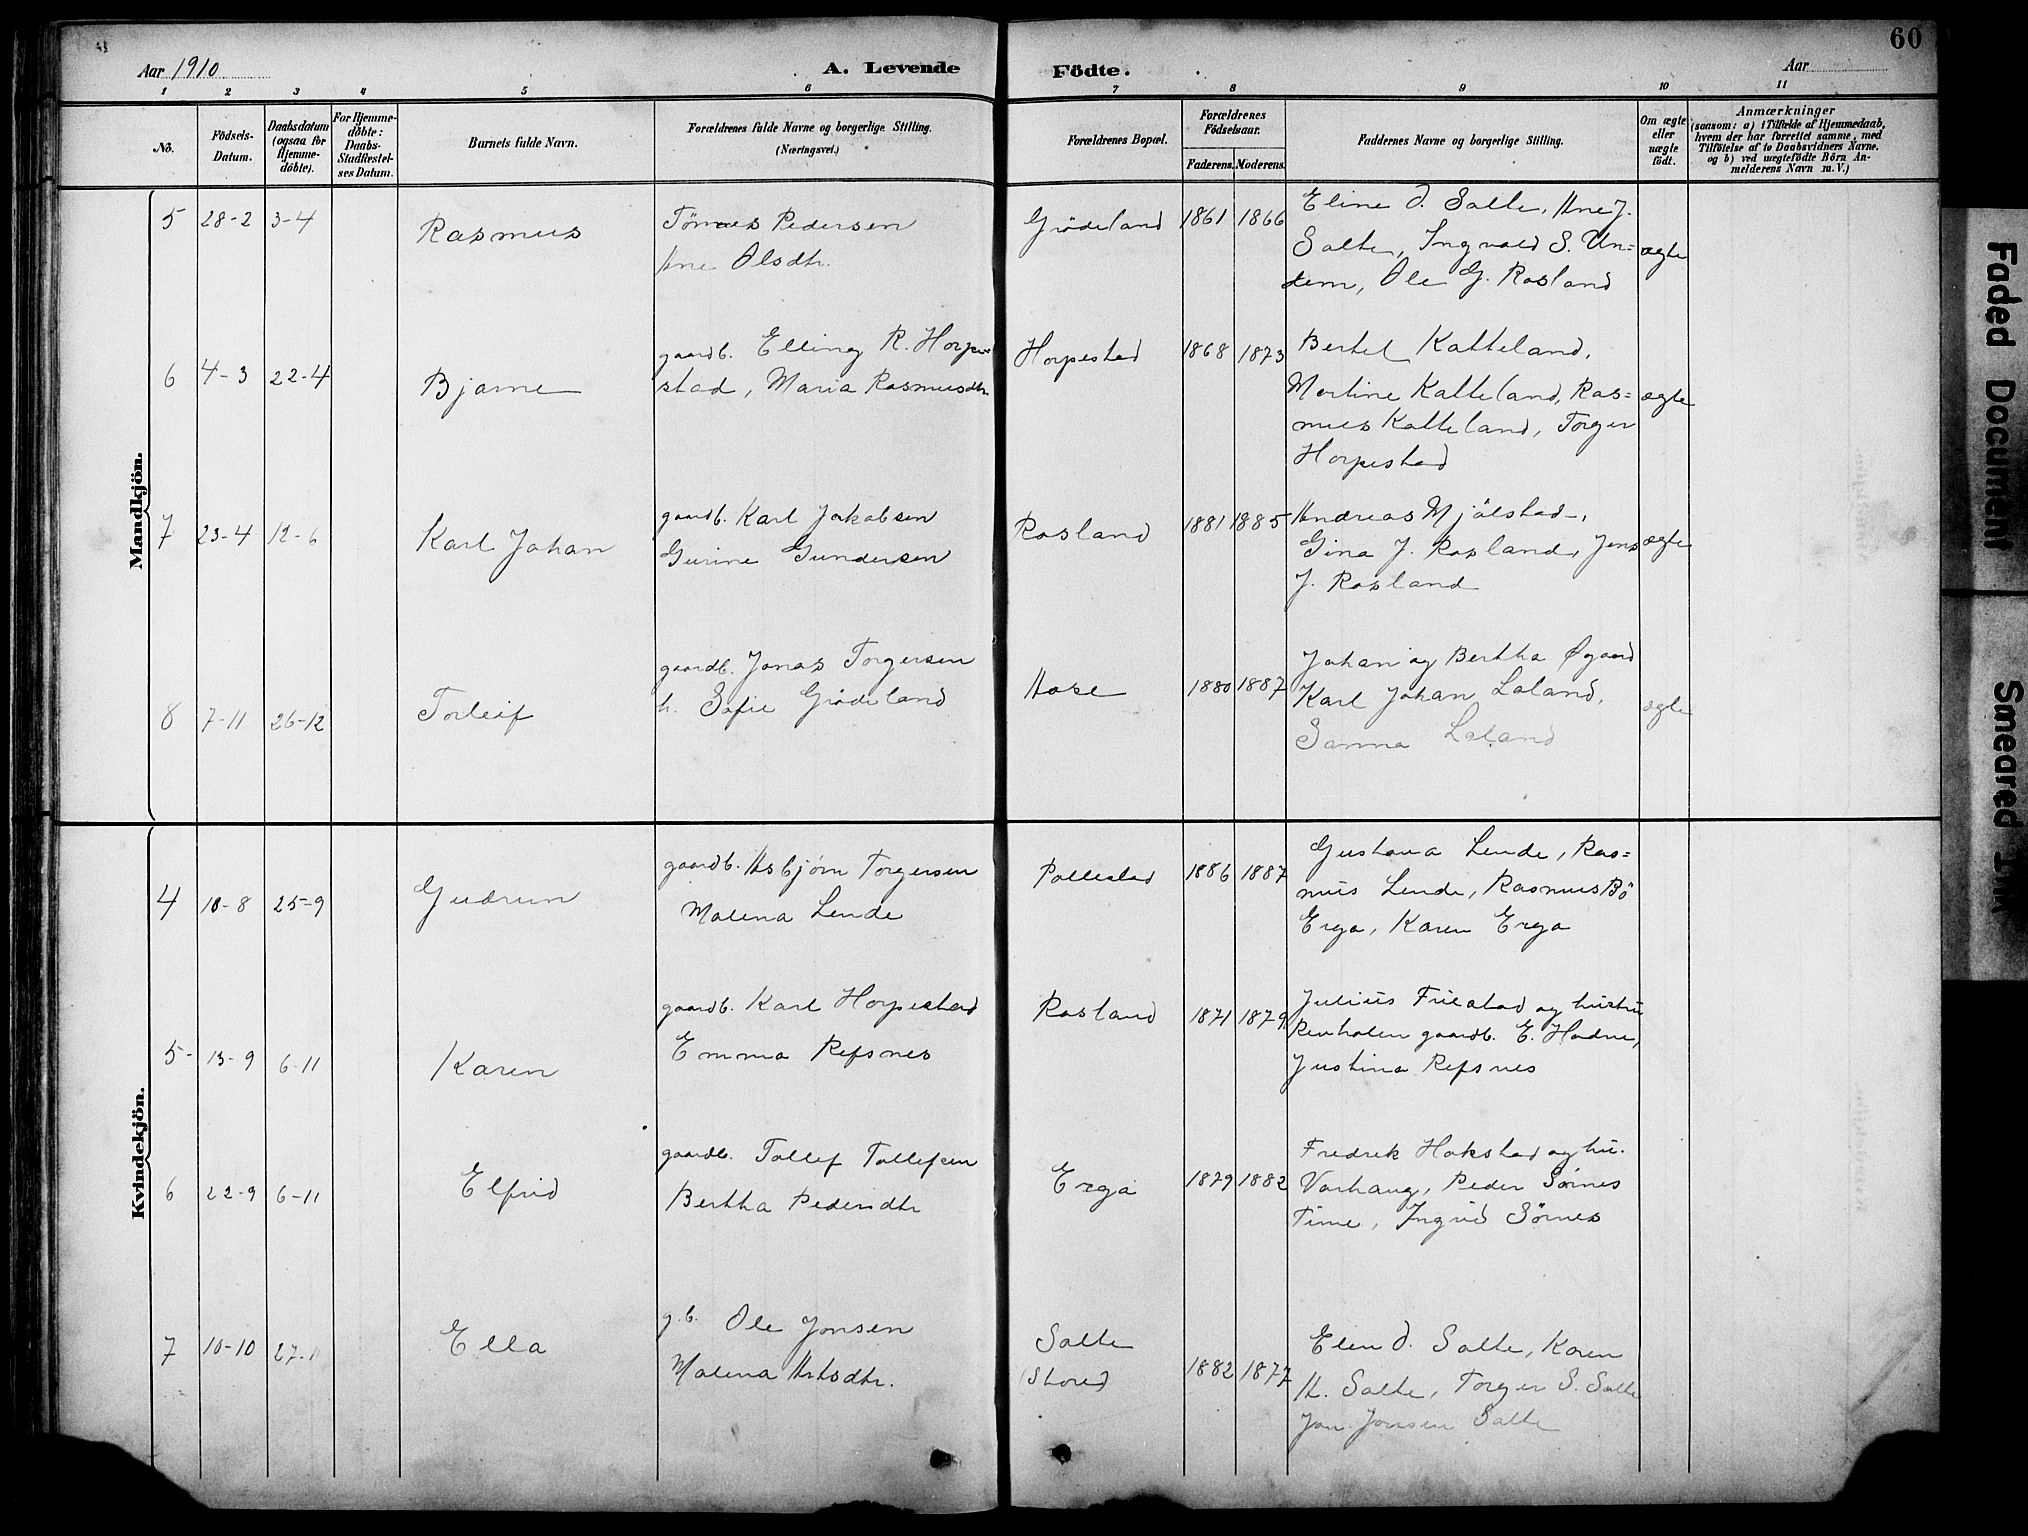 60
Aar 1910
A. Levende Födte.
Aar
1 2 3 4 5 6 7 8 9 10 11
No.
Födsels-Datum.
Daabsdatum (ogsaa for Hjemme-döbte).
For Hjemme-döbte: Daabs-Stadfestel-ses Datum.
Barnets fulde Navn.
Forældrenes fulde Navne og borgerlige Stilling.
(Næringsvei.)
Forældrenes Bopæl.
Forældrenes Födselsaar.
Faderens. Moderens.
Faddernes Navne og borgerlige Stilling.
Om ægte eller uægte födt.
Anmærkninger
(saasom: a) i Tilfælde af Hjemmedaab,
hvem der har forrettet samme, med
Tilföielse af to Daabsvidners Navne.
og b) ved uægtefödte Börn An-
melderens Navn m. V.)
Mandkjön.
5 28-2 3-4 Rasmus
Tønnes Pedersen
Ane Olsdtr.
Grødeland 1861 1866
Eline O. Salte, Ane J.
Salte, Ingvald S. Un=
dem, Ole G. Rosland
ægte
6 4-3 22-4 Bjarne
gaardb. Elling R. Horpe
stad, Maria Rasmusdtr
Horpestad 1868 1873
Bertel Katteland,
Martine Katteland, Ras=
mus Katteland, Torger
Horpestad
ægte
7 23-4 12-6 Karl Johan
gaardb. Karl Jakobsen
Gurine Gundersen
Rosland 1881 1885
Andreas Mjølstad,
Gina J. Rosland, Jens
J. Rosland
ægte
8 7-11 26-12 Torleif
gaardb. Jonas Torgersen
h. Sofie Grødeland
Aase 1880 1887
Johan og Bertha Øgaard
Karl Johan Laland,
Sanna Laland
ægte
Kvindekjön.
4 10-8 25-9 Gudrun
gaardb. Asbjørn Torgersen
Malena Lende
Pollestad 1886 1887
Gustava Lende, Ras=
mus Lende, Rasmus Bö
Erga, Karen Erga
5 13-9 6-11 Karen
gaardb. Karl Horpestad
Emma Refsnes
Rosland 1871 1879
Julius Fuestad og hustru
gaardb. E. Hadne,
Justina Refsnes
6 22-9 6-11 Elfrid
gaardb. Tollef Tollefsen
Bertha Pedersdtr
Erga 1879 1882
Fredrik Hakstad og hu.
Varhaug, Peder Sørnes
Time, Ingrid Sörnes
7 10-10 27-11 Ella
g.b. Ole Jonsen
Malena
Salte
1882 1877
Elen O. Salte, Karen
A. Salte, Torger S. Salte
Jon Jonsen Salte
Faded Document
Smeared Ink